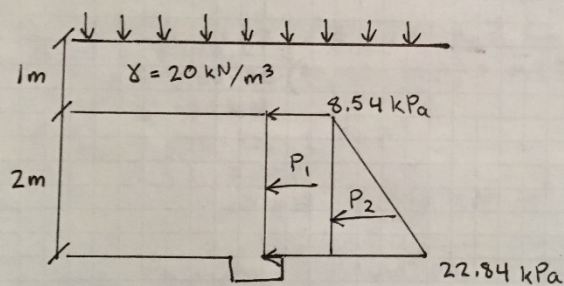 1m
γ = 20 kN/m³
8.54 kPa
2m
P₁
P₂
22.84 kPa